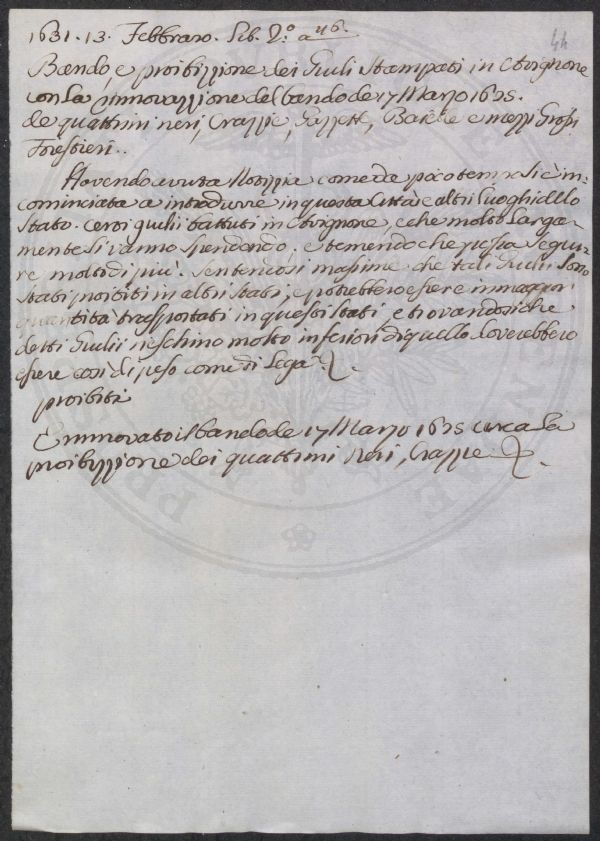 1631. 13. Febbraro. Lib. 2.º a 46.
44
Bando, e proibizzione dei Giuli Stampati in Avignone
con la rinnovazzione del bando de 17 Marzo 1625.
de quattrini neri, Crazzie, Gazzette, Baiche e mezzi Grossi
Forestieri..
Havendo avuta Notizzia come da poco tempo si è in:
cominciata a introdurre in questa Città e altri luoghi dello
Stato. certi giulii battuti in Avignone, e che molto larga:
mente si vanno spendendo, e temendo che possa segui:
re molto di più. sentendosi massime che tali Giulii Sono
stati proibiti in altri stati, e potrebbero essere in maggior
quantità trasportati in questi stati, e trovandosi che
detti Giulii neschino molto inferiori di quello doverebbero
essere così di peso come di lega
proibiti
È innovato il bando de 17 Marzo 1625 circa la
proibizzione dei quattrini Neri, Crazzie